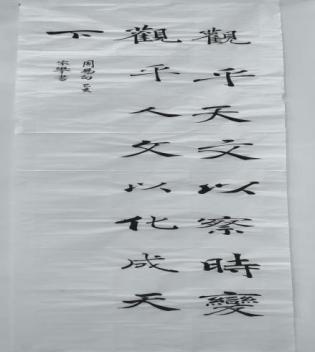 觀乎天文以察時變
觀乎人文以化成天
下
周易句
宋華書